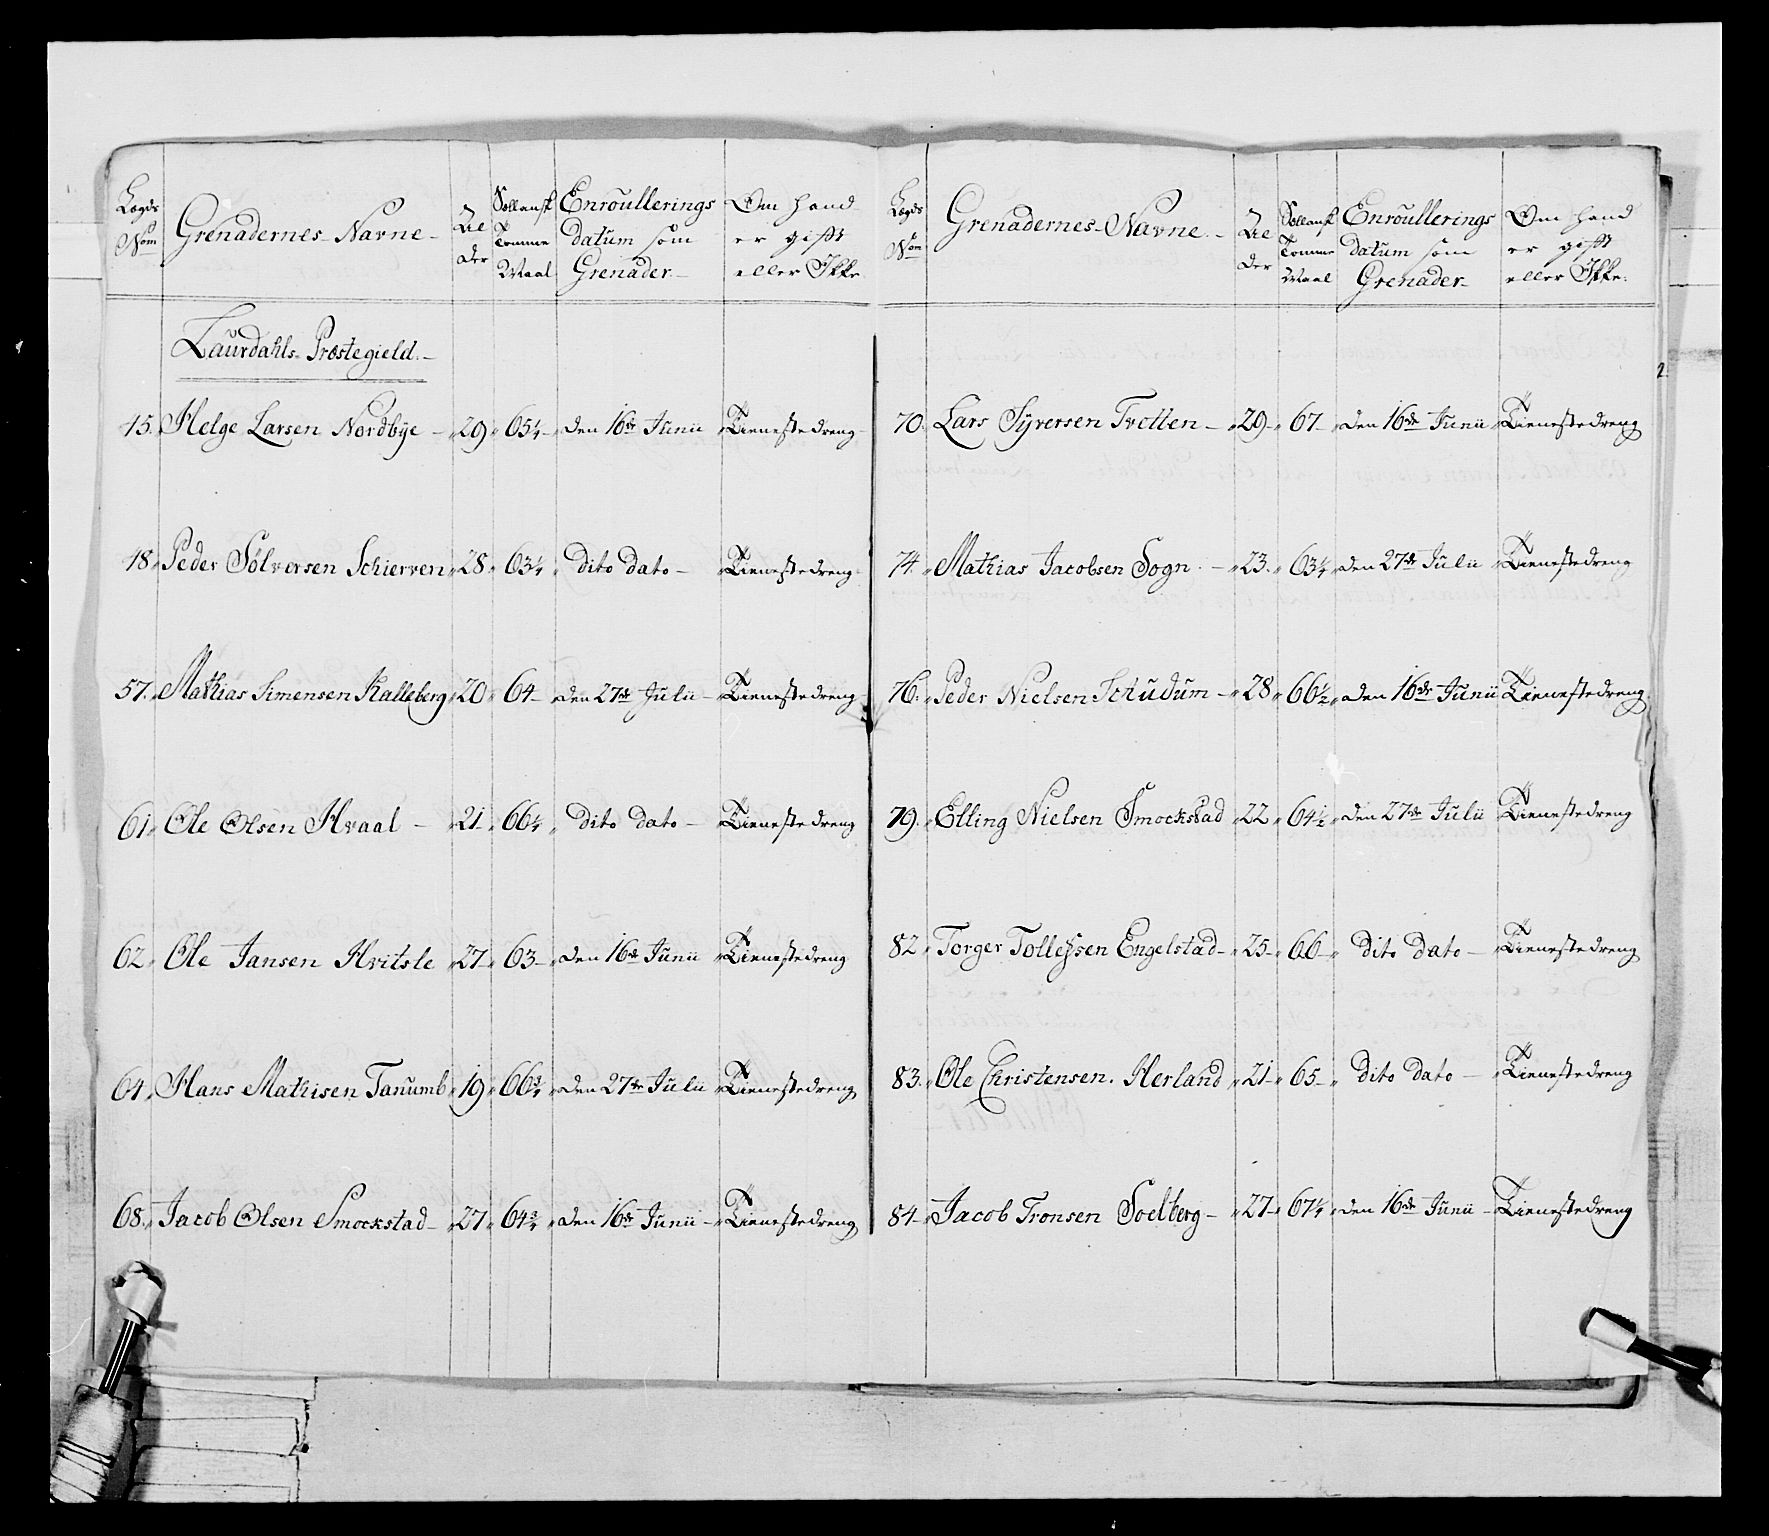 Lægds Nom
Grenadernes Navne
Alder
Sællansk Tomme Maal
Enroullerings datum som Grenader
Om hand er gift eller Ikke
Laurdahls Præstegield.
45. Helge Larsen Nordbÿe 29 65¼ den 16de Junii Tienestedreng
48. Peder Sølversen Schierven 28 63¼ dito dato Tienestedreng
57. Mathias Simensen Kalleberg 20 64 den 27de Julii Tienestedreng
61 Ole Olsen Hvaal 21 66¼ dito dato Tienestedreng
62 Ole Jansen Hvitsle 27 63 den 16de Junii Tienestedreng
64 Hans Mathisen Tanumb 19 66¾ den 27de Julii Tienestedreng
68. Jacob Olsen Smockstad 27 64¾ den 16de Junii Tienestedreng
Lægds Nom
Grenadernes Navne
Alder
Sællansk Tomme Maal
Enroullerings datum som Grenader
Om hand er gift eller Ikke.
70. Lars Syversen Tvetten 29 67 den 16de Junii Tienestedreng
74. Mathias Jacobsen Sogn 23. 63¼ den 27de Julii Tienestedreng
76. Peder Nielsen Schudum 28 66½ den 16de Junii Tienestedreng
79. Elling Nielsen Smockstad 22 64½ den 27de Julii Tienestedreng
82 Torger Tollefsen Engelstad 25 66 dito dato Tienestedreng
83. Ole Christensen. Herland 21 65 dito dato Tienestedreng
84 Jacob Tronsen Soelberg 27 67¼ den 16de Junii Tienestedreng
2.